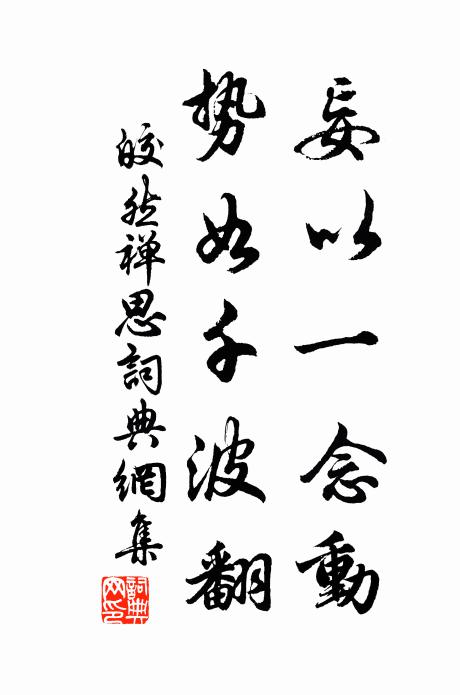 妄以一念動
勢如千波翻
皎然禅思詞典網集
詞典
网印